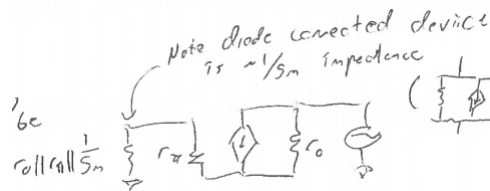 Note diode conected device
is ~1/gm impedence
be
ro||rπ||1/gm
rπ
ro